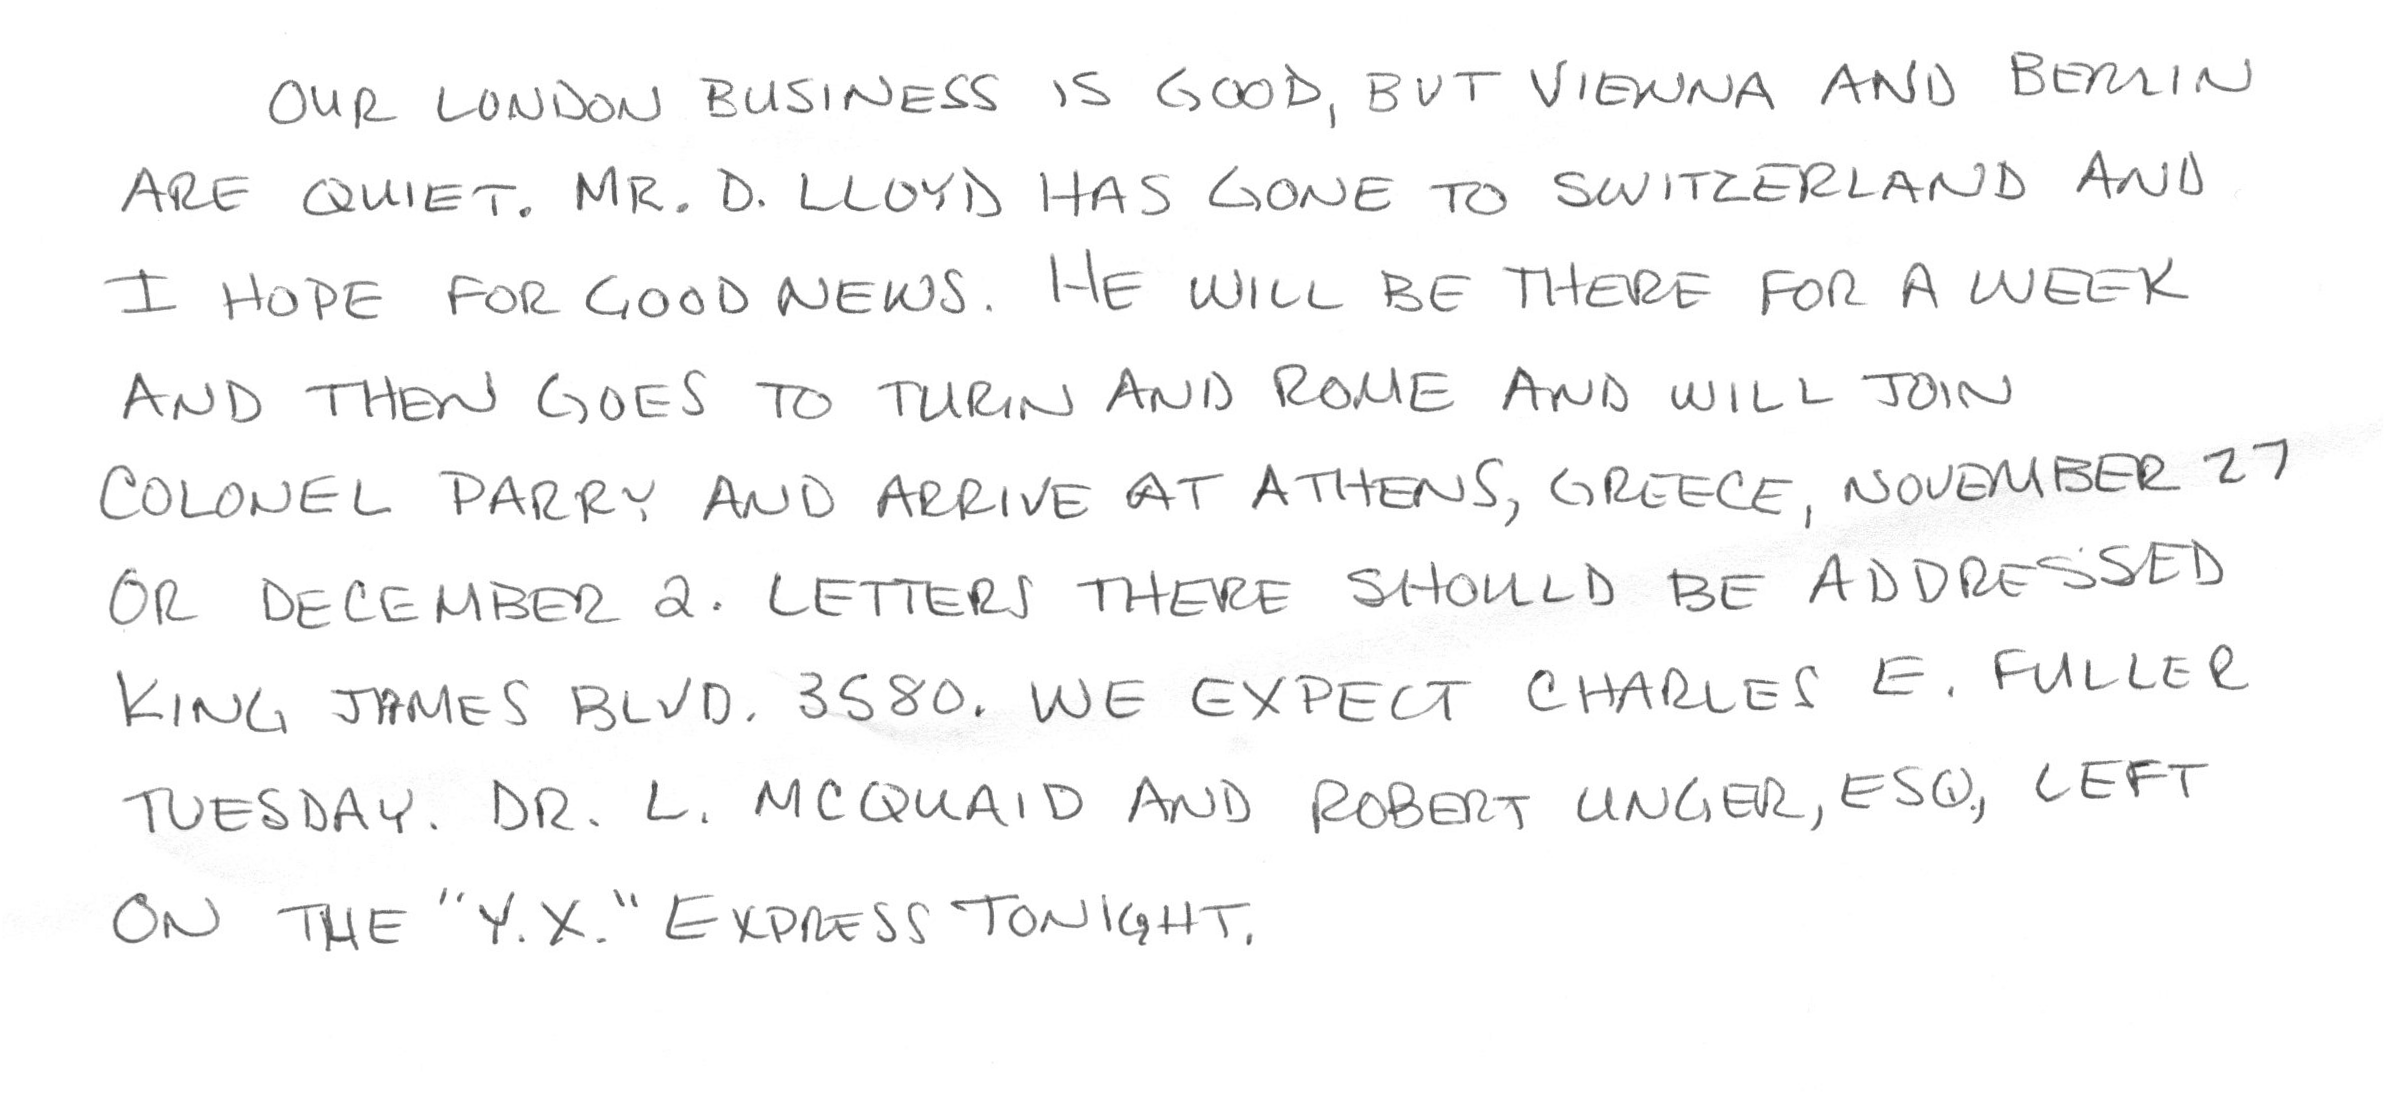 OUR LONDON BUSINESS IS GOOD, BUT VIENNA AND BERLIN
ARE QUIET. MR. D. LLOYD HAS GONE TO SWITZERLAND AND
I HOPE FOR GOOD NEWS. HE WILL BE THERE FOR A WEEK
AND THEN GOES TO TURIN AND ROME AND WILL JOIN
COLONEL PARRY AND ARRIVE AT ATHENS, GREECE, NOVEMBER 27
OR DECEMBER 2. LETTERS THERE SHOULD BE ADDRESSED
KING JAMES BLVD. 3580. WE EXPECT CHARLES E. FULLER
TUESDAY. DR. L. MCQUAID AND ROBERT UNGER, ESQ., LEFT
ON THE "Y.X." EXPRESS TONIGHT.